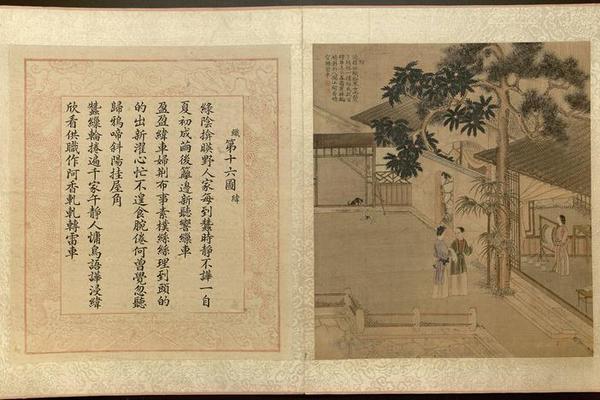 織第十六圖 緯
綠陰揜暎野人家每到蠶時靜不譁一自
夏初成繭後籬邊新聽響繅車
盈盈緯車婦荆布事素樸絲絲理到頭的
的出新濯心忙不遑食腕倦何曾覺忽聽
歸鴉啼斜陽挂屋角
蠶繅輪捲遍千家午靜人慵鳥語譁浸緯
欣看供職作阿香軋軋轉雷車